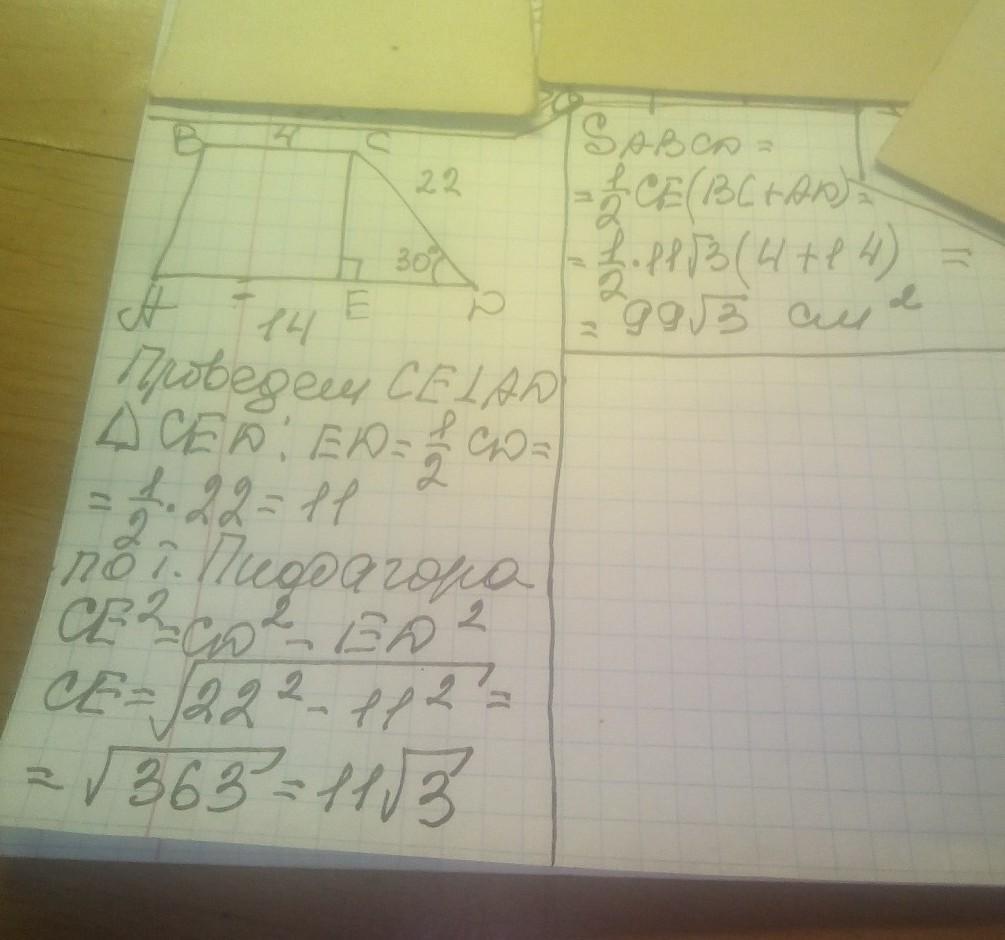 B 4 C
22
30°
A E D
14
Проведем CE⊥AD
△ CED: ED = 1/2 CD =
= 1/2 · 22 = 11
по т. Пифагора
CE² = CD² - ED²
CE = √(22² - 11²) =
= √363 = 11√3
SABCD =
= 1/2 CE(BC+AD) =
= 1/2 · 11√3 (4+14) =
= 99√3 см²